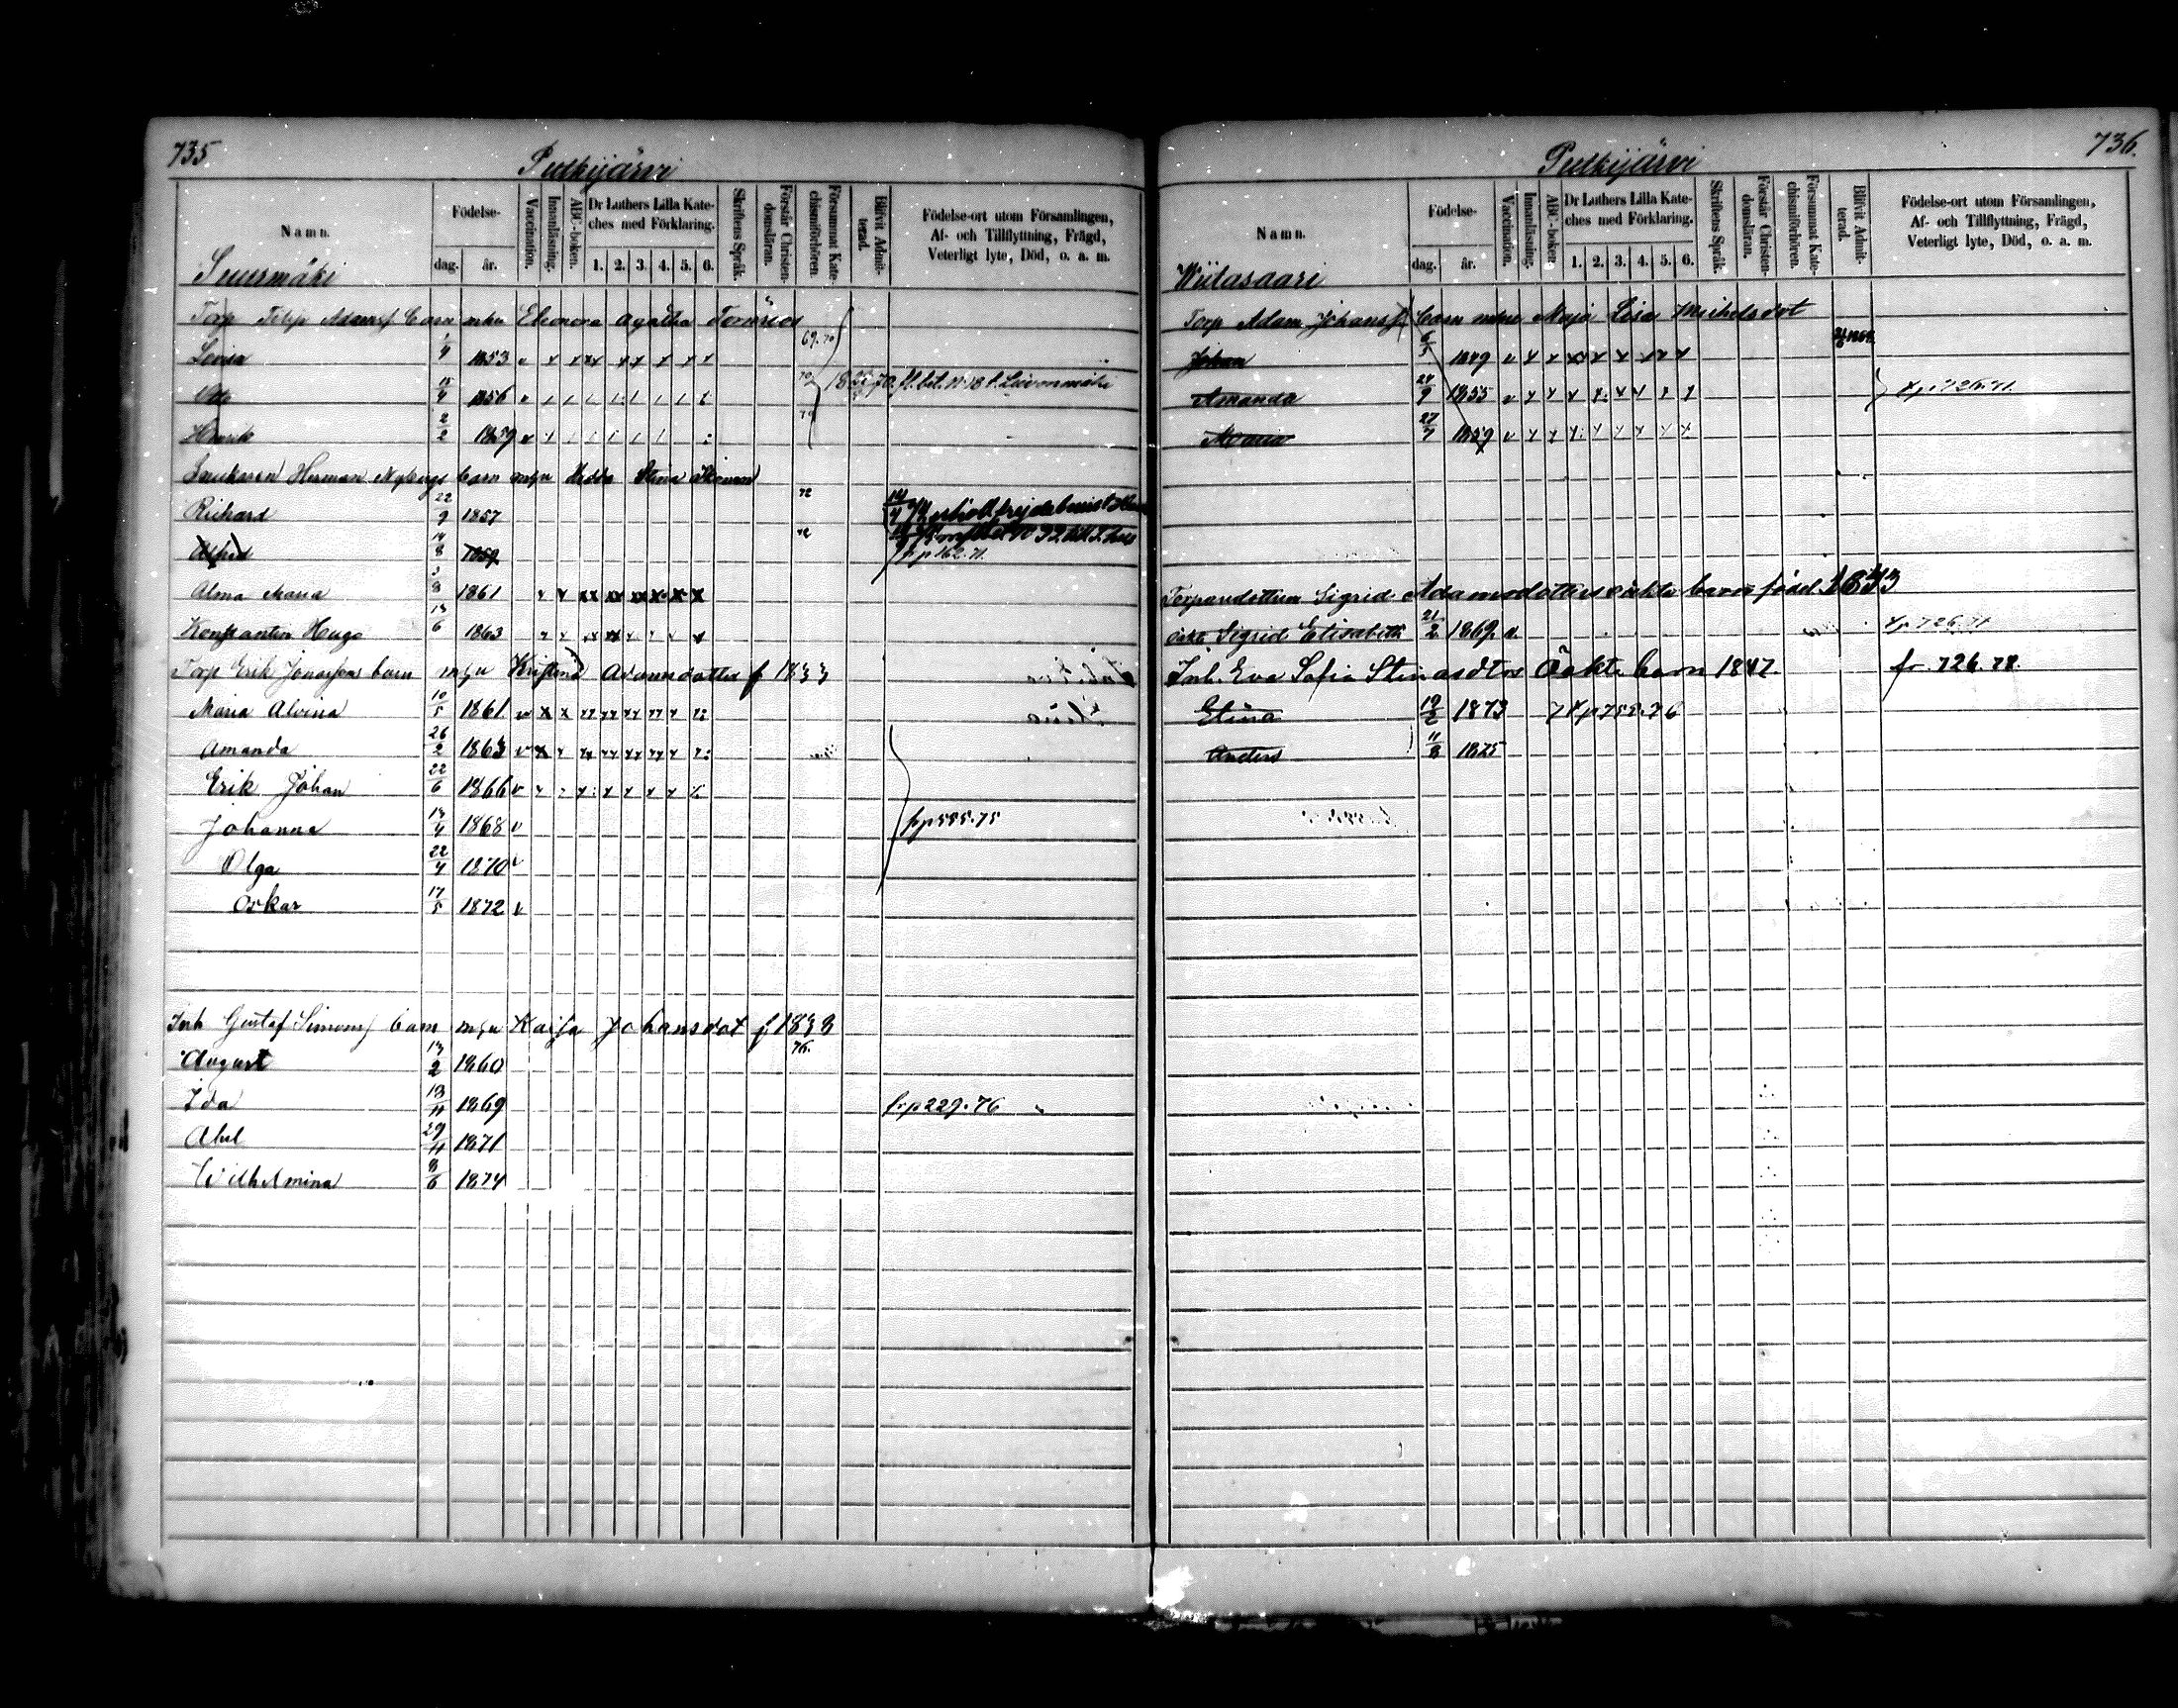 735.
Pulkijärvi
Namn.
Födelse-
dag. år.
Vaccination.
Innanläsning.
ABC-boken.
Dr Luthers Lilla Kate-
ches med Förklaring.
1. 2. 3. 4. 5. 6.
Skriftens Språk.
Förstår Christen-
domsläran.
Försummat Kate-
chismiförhören.
Blifvit Admit-
terad.
Födelse-ort utom Församlingen,
Af- och Tillflyttning, Frägd,
Veterligt lyte, Död, o. a. m.
Suurmäki
Torp Barn mhu Eleonora Agatha
69.70
Lovisa 1853
Otto 15/4 1856
Henrik 2/2 1859
Herman Nybergs barn mhu Hedda Stina
Richard 22/9 1857 72
Alfred 14/8 1859 72
fr p 162.71.
Alma Maria 3/8 1861
Konstantin Hugo 13/6 1863
Torp Erik Jonassons barn mhu Kristina Adamsdotter f 1833
Maria Alvina 10/5 1861
Amanda 26/2 1863
Erik Johan 22/6 1866
Johanna 13/4 1868 fr p 555.75
Olga 22/4 1870
Oskar 17/5 1872
Inh Gustaf Simons barn mhu Kaisa Johansdot f 1833
76.
August 13/2 1860
Ida 13/11 1869 fr p 229.76
Abel 29/11 1871
Wilhelmina 8/6 1874
736.
Pulkijärvi
Namn.
Födelse-
dag. år.
Vaccination.
Innanläsning.
ABC-boken
Dr Luthers Lilla Kate-
ches med Förklaring.
1. 2. 3. 4. 5. 6.
Skriftens Språk.
Förstår Christen-
domsläran.
Försummat Kate-
chismiförhören.
Blifvit Admit-
terad.
Födelse-ort utom Församlingen,
Af- och Tillflyttning, Frägd,
Veterligt lyte, Död, o. a. m.
Wiitasaari
Torp Adam Johanss barn mhu Maja Lisa Michelsdot
Johan 6/5 1849
Amanda 24/9 1855 fr p 726.71.
Maria 27/7 1859
Torparedottren Sigrid Adamsdotters oäkta barn född 1833
oäkt Sigrid Elisabeth 21/2 1869 fr p 726.71
Inh. Eva Sofia Stinasdtrs Oäkta barn 1847. fr. 726.78.
Elina 19/2 1873
Anders 11/8 1875